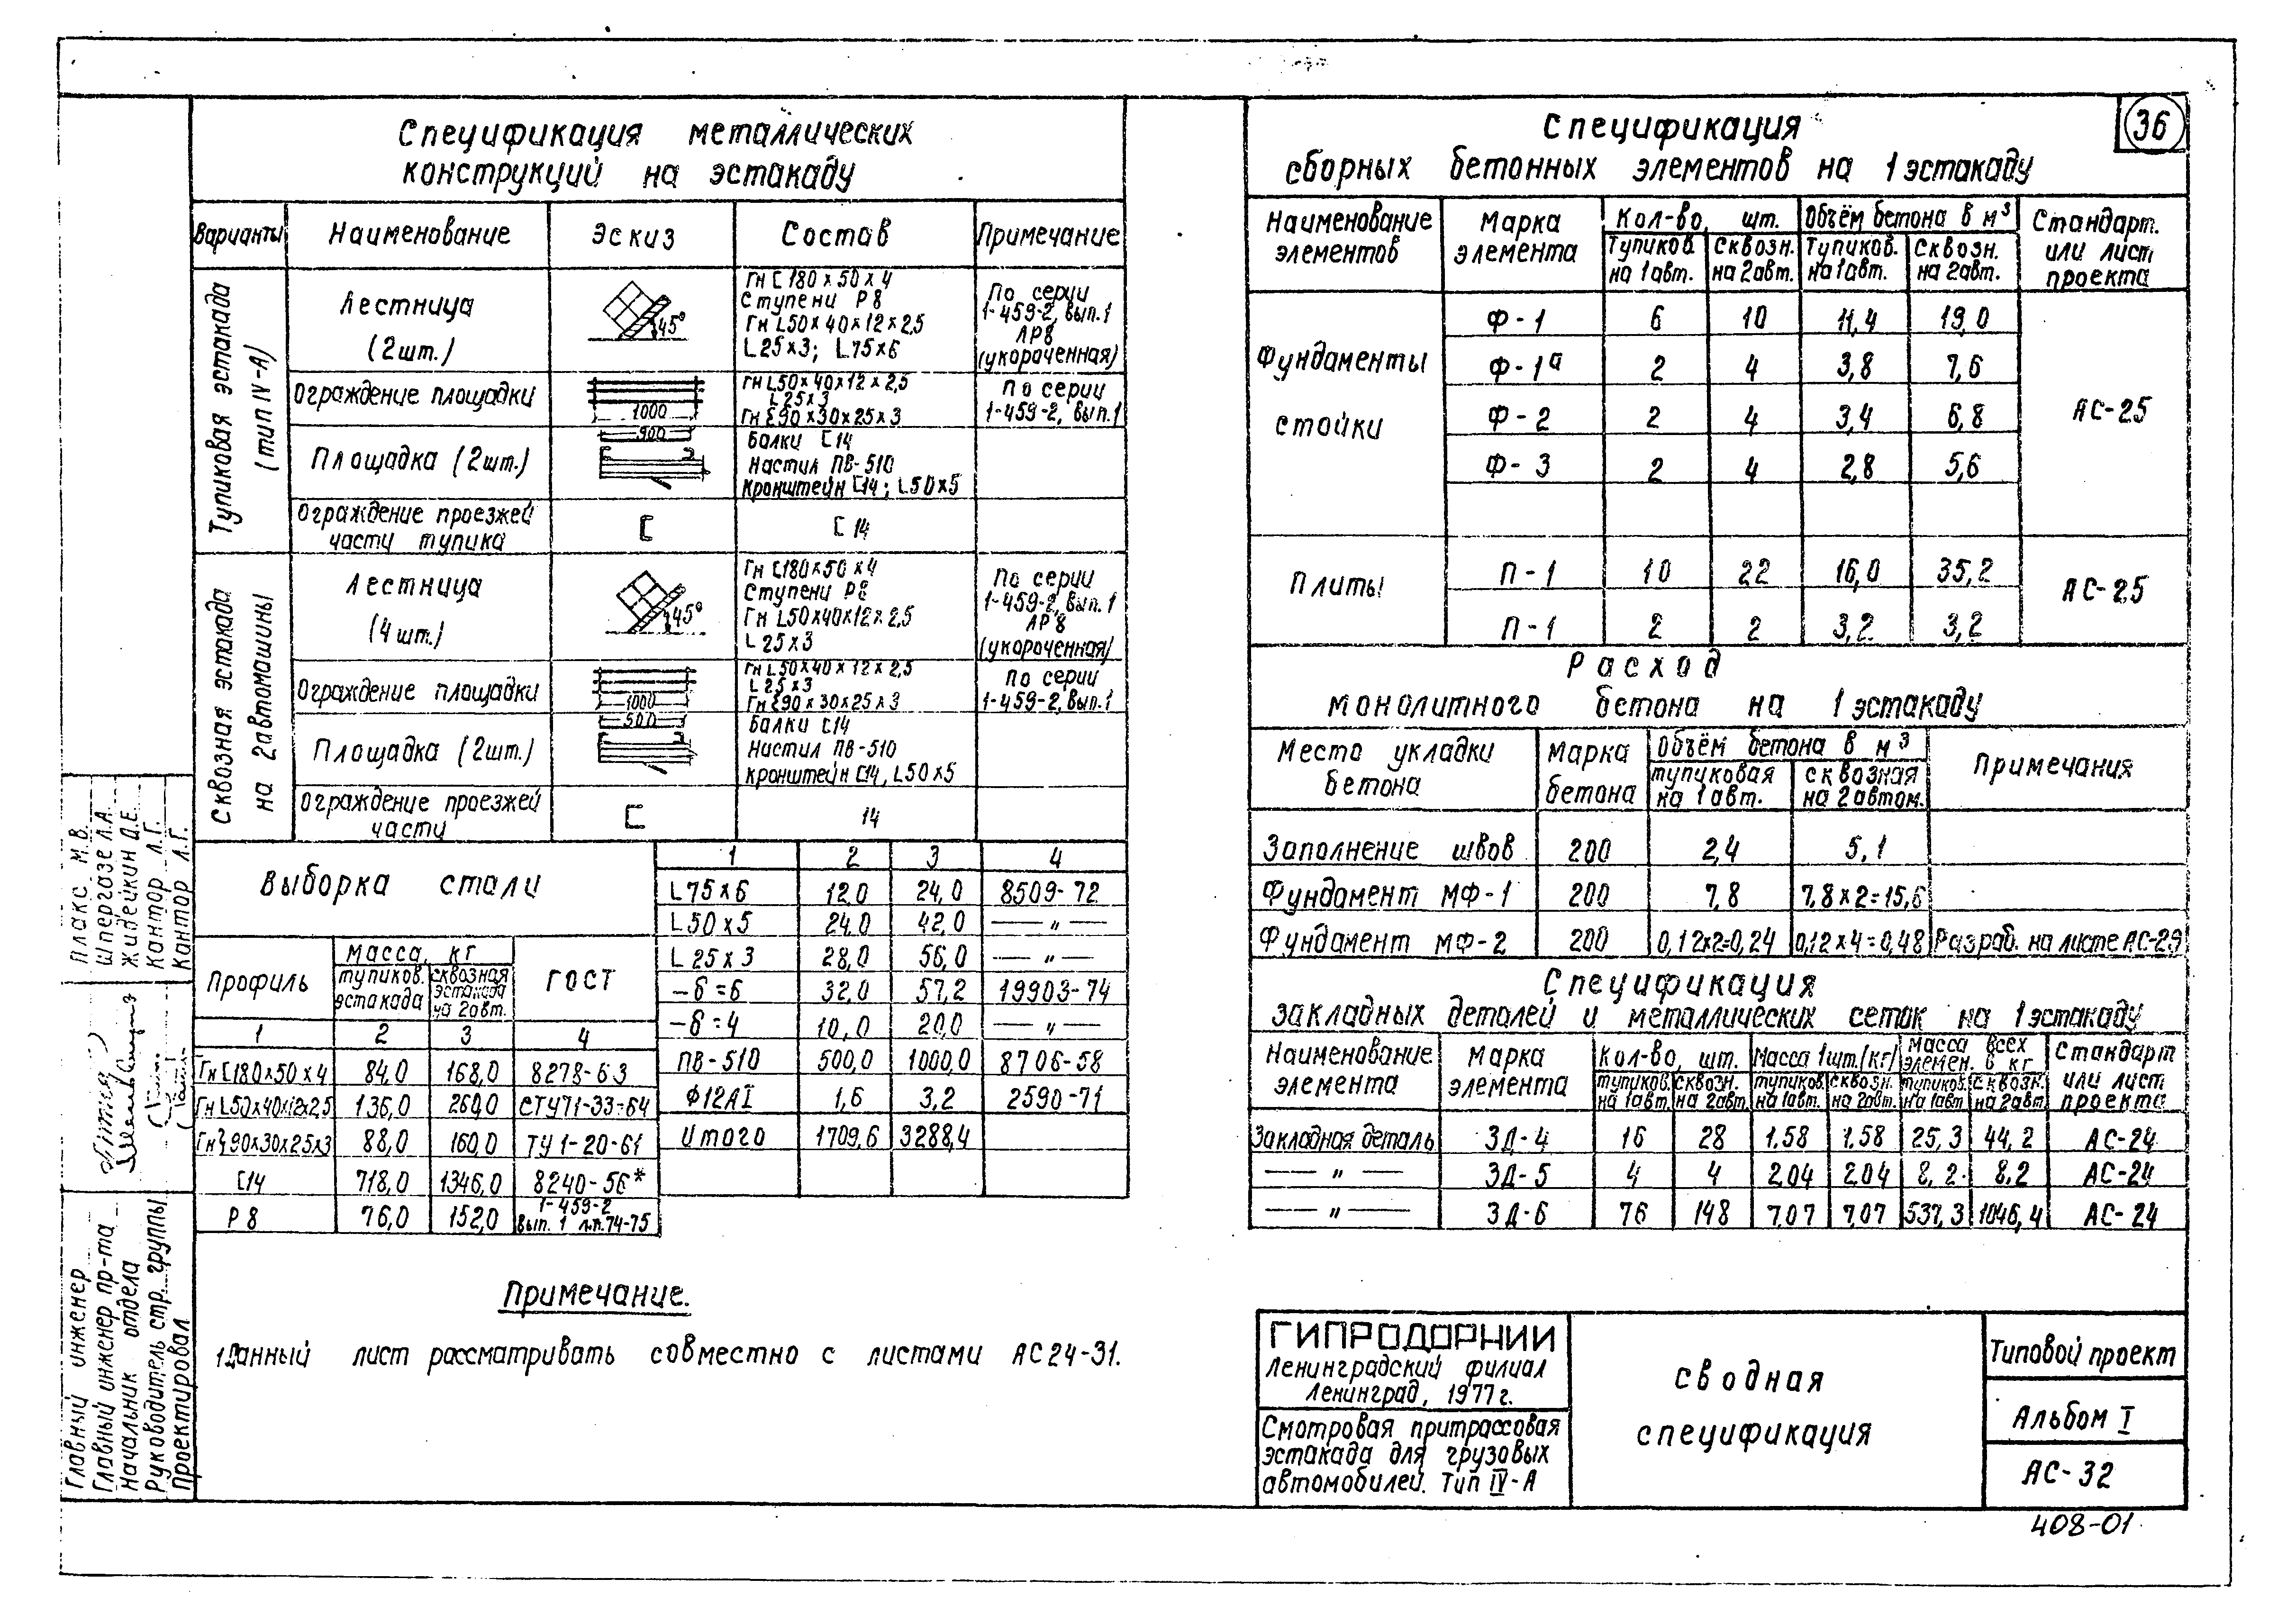 36
Спецификация металлических
конструкций на эстакаду
Варианты Наименование Эскиз Состав Примечание
Тупиковая эстакада
(тип IV-А)
Лестница
(2шт.)
45°
Гн [ 180 × 50 × 4
Ступени Р8
Гн L50×40×12×2,5
L25×3; L75×6
По серии
1-459-2, вып.1
ЛР8
(укороченная)
Ограждение площадки
1000
Гн L50×40×12×2,5
L25×3
Гн Σ90×30×25×3
По серии
1-459-2, вып.1
Площадка (2шт.)
900
Балки [14
Настил ПВ-510
Кронштейн [14; L50×5
Ограждение проезжей
части тупика
[
[ 14
Сквозная эстакада
на 2автомашины
Лестница
(4 шт.)
45°
Гн [180×50×4
Ступени Р8
Гн L50×40×12×2,5
L 25×3
По серии
1-459-2, вып.1
ЛР8
(укороченная)
Ограждение площадки
1000
Гн L50×40×12×2,5
L25×3
Гн Σ90×30×25×3
По серии
1-459-2, вып.1
Площадка (2шт.)
Балки [14
Настил ПВ-510
кронштейн [14, L50×5
Ограждение проезжей
части
[
14
Выборка стали
Профиль Масса, кг ГОСТ
тупиков. эстакада сквозная эстакада на 2авт.
1 2 3 4
Гн [180×50×4 84,0 168,0 8278-63
Гн L50×40×12×2,5 136,0 260,0 СТУ71-33-64
Гн Σ90×30×25×3 88,0 160,0 ТУ 1-20-61
[14 718,0 1346,0 8240-56*
Р8 76,0 152,0 1-459-2 вып. 1 л.л.74-75
1 2 3 4
L75×6 12,0 24,0 8509-72
L50×5 24,0 42,0 —〃—
L 25×3 28,0 56,0 —〃—
-δ=6 32,0 57,2 19903-74
-δ=4 10,0 20,0 —〃—
ПВ-510 500,0 1000,0 8706-58
Ф12АI 1,6 3,2 2590-71
Итого 1709,6 3288,4
Примечание.
1 Данный лист рассматривать совместно с листами АС24-31.
Спецификация
сборных бетонных элементов на 1 эстакаду
Наименование элементов Марка элемента Кол-во, шт. Объём бетона в м³ Стандарт. или лист проекта
Тупиков. на 1авт. Сквозн. на 2авт. Тупиков. на 1авт. Сквозн. на 2авт.
Фундаменты
стойки
Ф-1 6 10 11,4 19,0
Ф-1а 2 4 3,8 7,6
Ф-2 2 4 3,4 6,8
Ф-3 2 4 2,8 5,6
АС-25
Плиты
П-1 10 22 16,0 35,2
П-1 2 2 3,2 3,2
АС-25
Расход
монолитного бетона на 1 эстакаду
Место укладки бетона Марка бетона Объём бетона в м³ Примечания
тупиковая на 1авт. сквозная на 2автом.
Заполнение швов 200 2,4 5,1
Фундамент МФ-1 200 7,8 7,8×2=15,6
Фундамент МФ-2 200 0,12×2=0,24 0,12×4=0,48 Разраб. на листе АС-29
Спецификация
закладных деталей и металлических сеток на 1 эстакаду
Наименование элемента Марка элемента Кол-во, шт. Масса 1шт.(кг) Масса всех элемен. в кг Стандарт или лист проекта
тупиков. на 1авт. сквозн. на 2авт. тупиков. на 1авт. сквозн. на 2авт. тупиков. на 1авт сквозн. на 2авт
Закладная деталь ЗД-4 16 28 1.58 1.58 25,3 44,2 АС-24
—〃— ЗД-5 4 4 2.04 2.04 8,2 8,2 АС-24
—〃— ЗД-6 76 148 7,07 7,07 537,3 1046,4 АС-24
ГИПРОДОРНИИ
Ленинградский филиал
Ленинград, 1977г.
Смотровая притрассовая
эстакада для грузовых
автомобилей. Тип IV-А
Сводная
спецификация
Типовой проект
Альбом I
АС-32
408-01
Главный инженер Плакс М.В.
Главный инженер пр-та Шпергозе Л.А.
Начальник отдела
Руководитель стр. группы Кантор Л.Г.
Проектировал Кантор Л.Г.